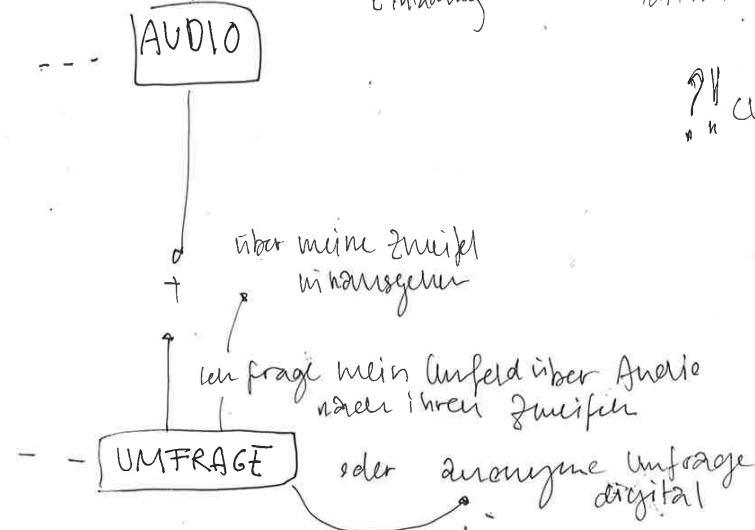 Einladung
AUDIO
?!!
über meine Zweifel
hinausgehen
+
ich frage mein Umfeld über Audio
nach ihren Zweifeln
UMFRAGE
oder anonyme Umfrage
digital